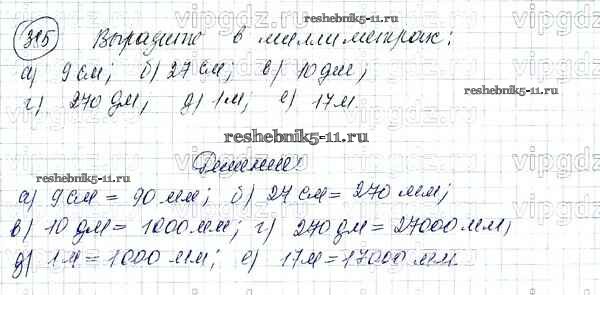 385 Выразите в миллиметрах:
а) 9 см; б) 27 см; в) 10 дм;
г) 270 дм; д) 1м; е) 17м.
Решение:
а) 9см = 90 мм; б) 27 см = 270 мм;
в) 10 дм = 1000 мм; г) 270 дм = 27000 мм;
д) 1м = 1000 мм; е) 17м = 17000 мм.
reshebnik5-11.ru
reshebnik5-11.ru
reshebnik5-11.ru
reshebnik5-11.ru
reshebnik5-11.ru
vipgdz.ru